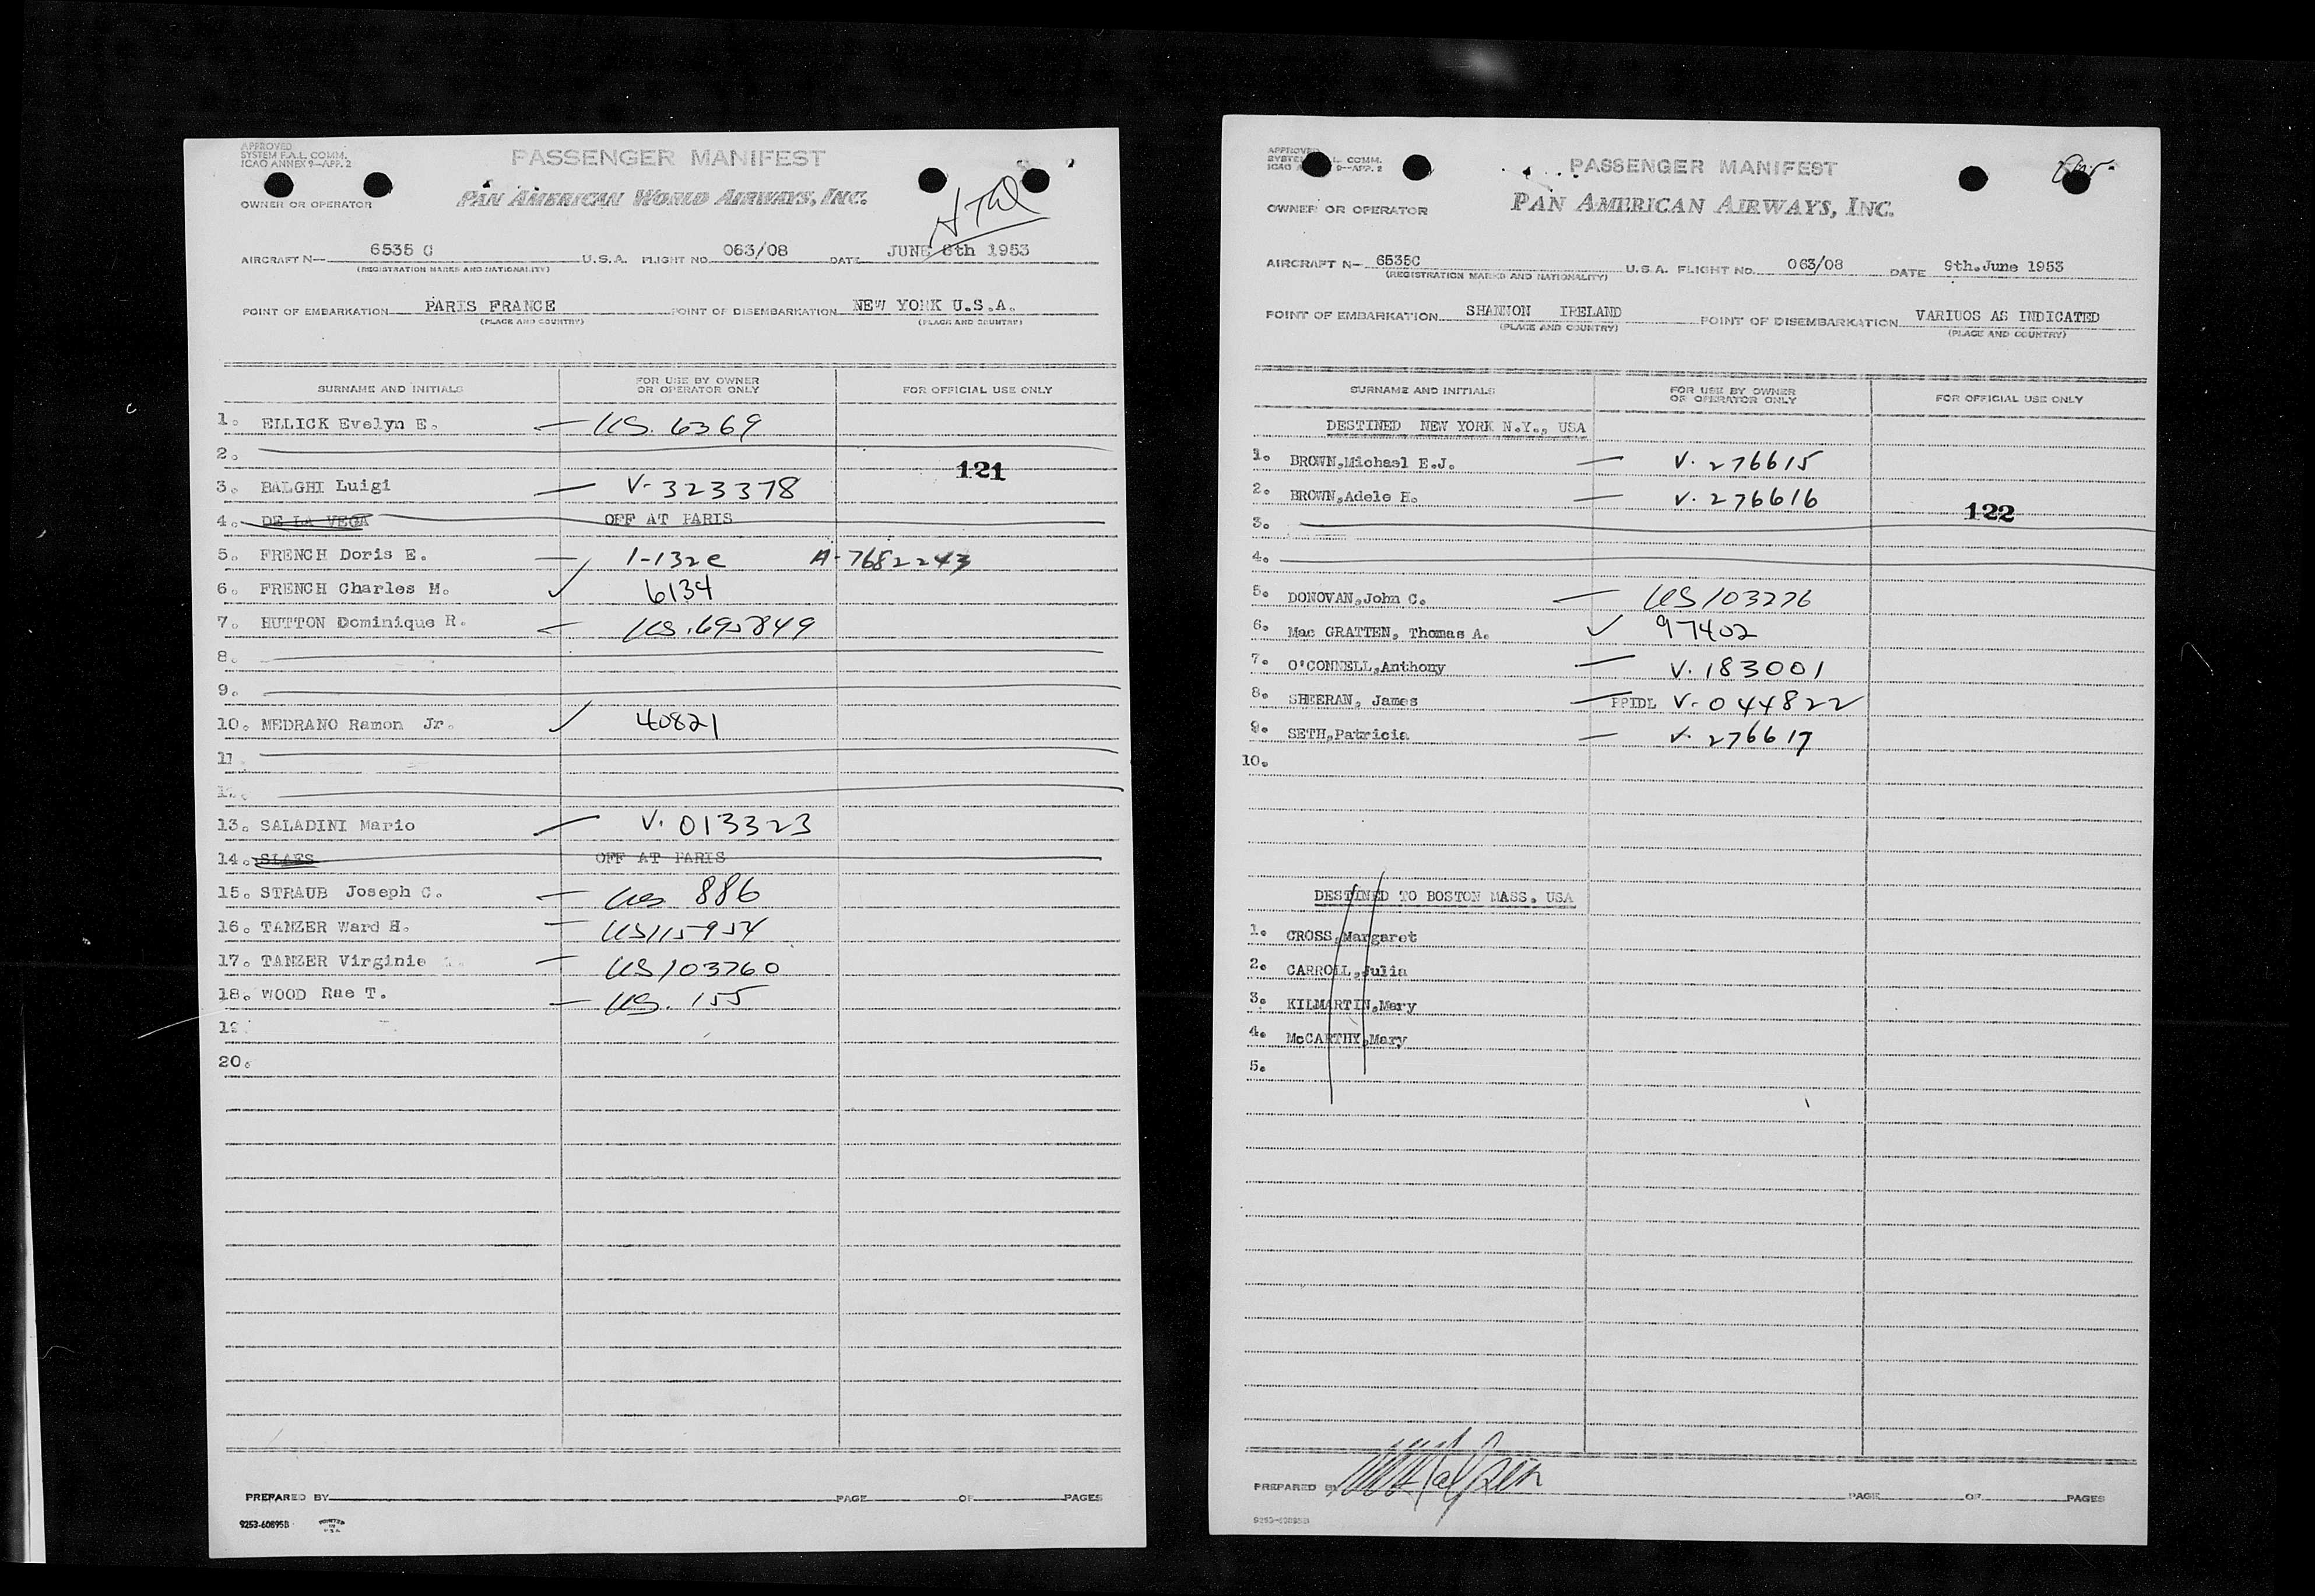 APPROVED
SYSTEM F.A.L. COMM.
ICAO ANNEX 9—APP. 2
PASSENGER MANIFEST
OWNER OR OPERATOR
PAN AMERICAN WORLD AIRWAYS, INC.
AIRCRAFT N— 6535 C U.S.A. FLIGHT NO. 063/08 DATE JUNE 8th 1953
(REGISTRATION MARKS AND NATIONALITY)
POINT OF EMBARKATION PARIS FRANCE POINT OF DISEMBARKATION NEW YORK U.S.A.
(PLACE AND COUNTRY) (PLACE AND COUNTRY)
SURNAME AND INITIALS FOR USE BY OWNER OR OPERATOR ONLY FOR OFFICIAL USE ONLY
1. ELLICK Evelyn E. — US. 6369
2.
121
3. BALGHI Luigi — V- 323378
4. DE LA VEGA OFF AT PARIS
5. FRENCH Doris E. — 1-132c A-7682243
6. FRENCH Charles M. ✓ 6134
7. HUTTON Dominique R. — US.695849
8.
9.
10. MEDRANO Ramon Jr. ✓ 40821
11
12.
13. SALADINI Mario — V. 013323
14. SLAES OFF AT PARIS
15. STRAUB Joseph C. — US 886
16. TANZER Ward H. — US115954
17. TANZER Virginie — US103760
18. WOOD Rae T. — US. 155
19
20.
PREPARED BY PAGE OF PAGES
9253-60895B PRINTED IN U.S.A.
APPROVED
SYSTEM F.A.L. COMM.
ICAO ANNEX 9—APP. 2
PASSENGER MANIFEST
OWNER OR OPERATOR
PAN AMERICAN AIRWAYS, INC.
AIRCRAFT N— 6535C U.S.A. FLIGHT NO. 063/08 DATE 9th.June 1953
(REGISTRATION MARKS AND NATIONALITY)
POINT OF EMBARKATION SHANNON IRELAND POINT OF DISEMBARKATION VARIUOS AS INDICATED
(PLACE AND COUNTRY) (PLACE AND COUNTRY)
SURNAME AND INITIALS FOR USE BY OWNER OR OPERATOR ONLY FOR OFFICIAL USE ONLY
DESTINED NEW YORK N.Y., USA
1. BROWN,Michael E.J. — V. 276615
2. BROWN,Adele H. — V. 276616
122
3.
4.
5. DONOVAN,John C. — US103276
6. Mac GRATTEN, Thomas A. ✓ 97402
7. O'CONNELL,Anthony — V. 183001
8. SHEERAN, James — PPIDL V- 044822
9. SETH,Patricia — V. 276617
10.
DESTINED TO BOSTON MASS. USA
1. CROSS,Margaret
2. CARROLL,Julia
3. KILMARTIN,Mary
4. McCARTHY,Mary
5.
PREPARED BY PAGE OF PAGES
9253-60895B